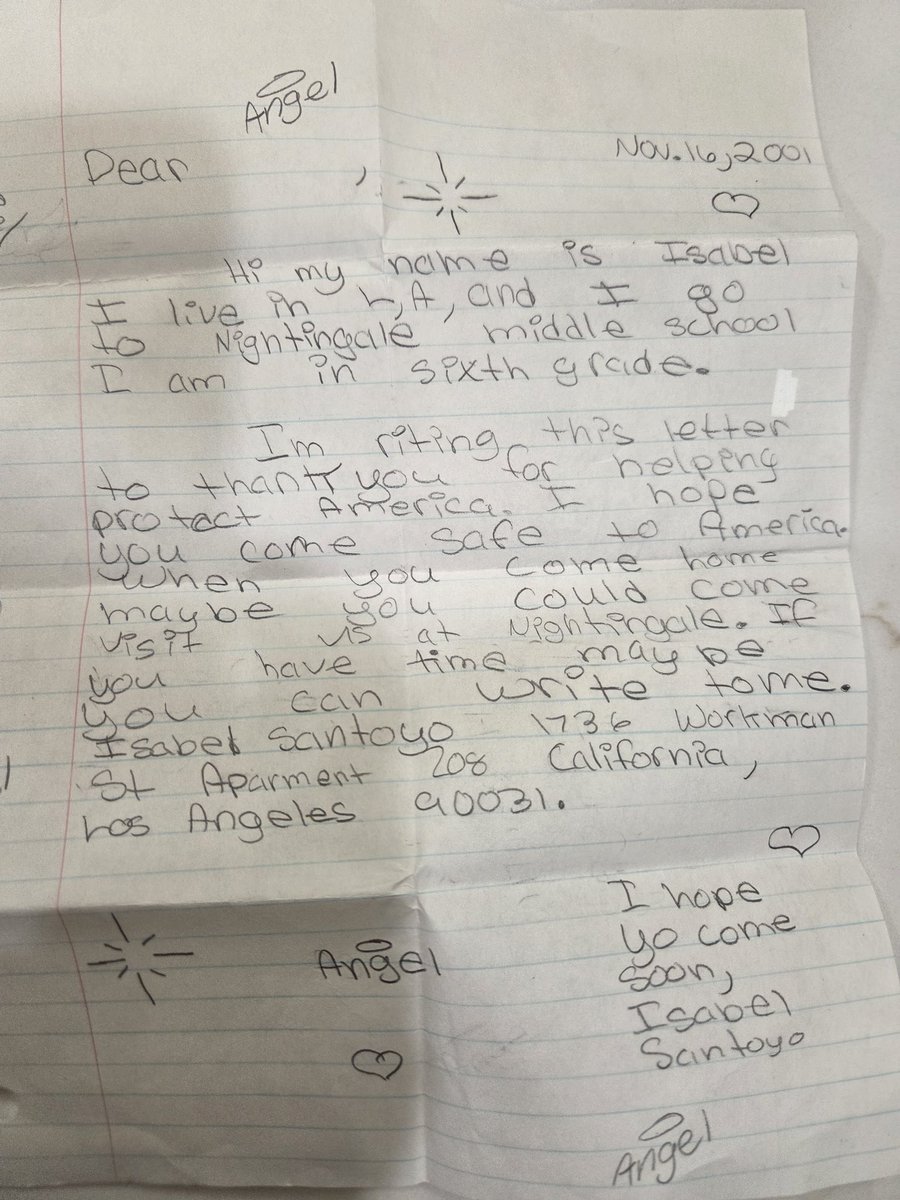 Angel
Nov. 16, 2001
Dear ,
Hi my name is Isabel
I live in L,A, and I go
to Nightingale middle school
I am in sixth grade.
Im riting this letter
to thank you for helping
protect America. I hope
you come safe to America.
When you come home
maybe you could come
visit us at Nightingale. If
you have time maybe
you can write to me.
Isabel Santoyo 1736 Workman
St Aparment 208 California,
Los Angeles 90031.
I hope
yo come
soon,
Isabel
Santoyo
Angel
Angel